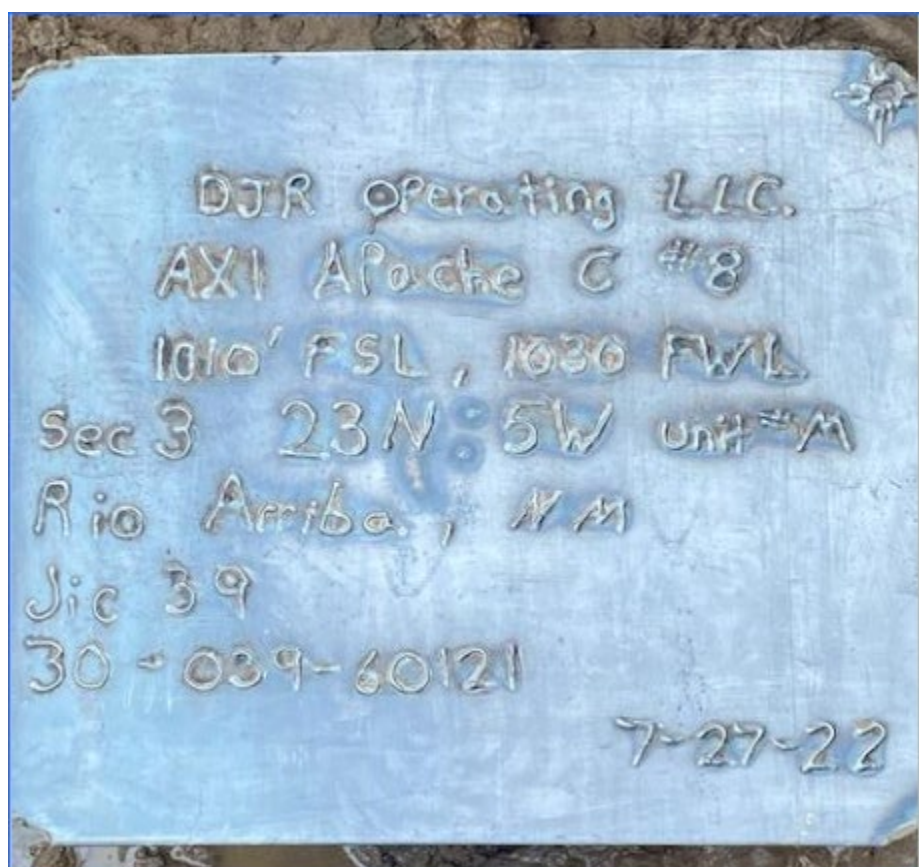 DJR Operating LLC.
AXI Apache C #8
1010' FSL, 1030 FWL
Sec 3 23N 5W unit #M
Rio Arriba, NM
Jic 39
30-039-60121
7-27-22